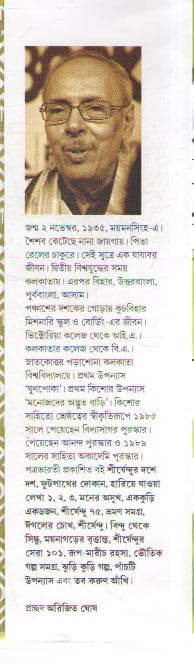 জন্ম ২ নভেম্বর, ১৯৩৫, ময়মনসিংহ-এ।
শৈশব কেটেছে নানা জায়গায়। পিতা
রেলের চাকুরে। সেই সূত্রে এক যাযাবর
জীবন। দ্বিতীয় বিশ্বযুদ্ধের সময়
কলকাতায়। এরপর বিহার, উত্তরবাংলা,
পূর্ববাংলা, আসাম।
পঞ্চাশের দশকের গোড়ায় কুচবিহার
মিশনারি স্কুল ও বোর্ডিং-এর জীবন।
ভিক্টোরিয়া কলেজ থেকে আই.এ.।
কলকাতার কলেজ থেকে বি.এ.।
স্নাতকোত্তর পড়াশোনা কলকাতা
বিশ্ববিদ্যালয়ে। প্রথম উপন্যাস
‘ঘুণপোকা’। প্রথম কিশোর উপন্যাস
‘মনোজদের অদ্ভুত বাড়ি’। কিশোর
সাহিত্যে শ্রেষ্ঠত্বের স্বীকৃতিরূপে ১৯৮৫
সালে পেয়েছেন বিদ্যাসাগর পুরস্কার।
পেয়েছেন আনন্দ পুরস্কার ও ১৯৮৯
সালের সাহিত্য অকাদেমি পুরস্কার।
পত্রভারতী প্রকাশিত বই শীর্ষেন্দুর দশে
দশ, ফুটপাথের দোকান, হারিয়ে যাওয়া
লেখা ১, ২, ৩, মনের অসুখ, এককুড়ি
একডজন, শীর্ষেন্দু ৭৫, ভ্রমণ সমগ্র,
ঈগলের চোখ, শীর্ষেন্দু। বিন্দু থেকে
সিন্ধু, ময়নাগড়ের বৃত্তান্ত, শীর্ষেন্দুর
সেরা ১০১, রূপ-মারীচ রহস্য, ভৌতিক
গল্প সমগ্র, ঝুড়ি কুড়ি গল্প, পাঁচটি
উপন্যাস এবং তব করুণ আঁখি।
প্রচ্ছদ অরিজিত ঘোষ